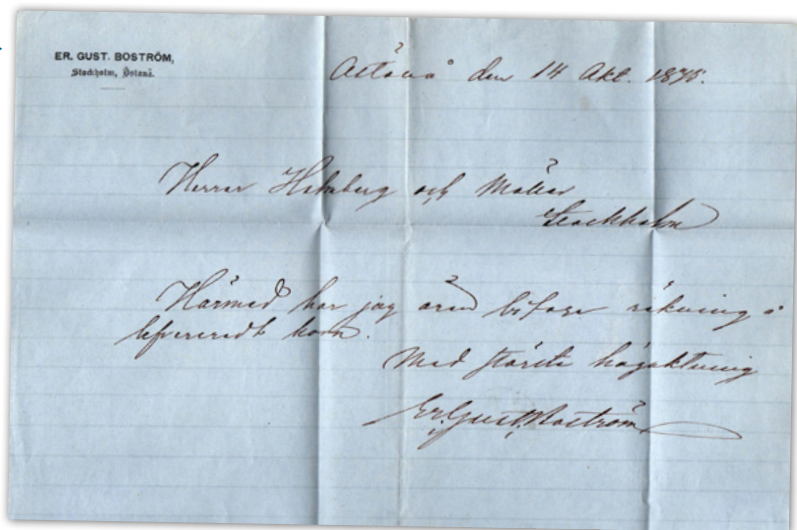 ER. GUST. BOSTRÖM,
Stockholm, Östanå.
Östanå den 14 Okt. 1875.
Herrar och Möller
Stockholm
Härmed har jag äran bifoga räkning å
lefvereradt korn.
Med största högaktning
Er. Gust. Boström